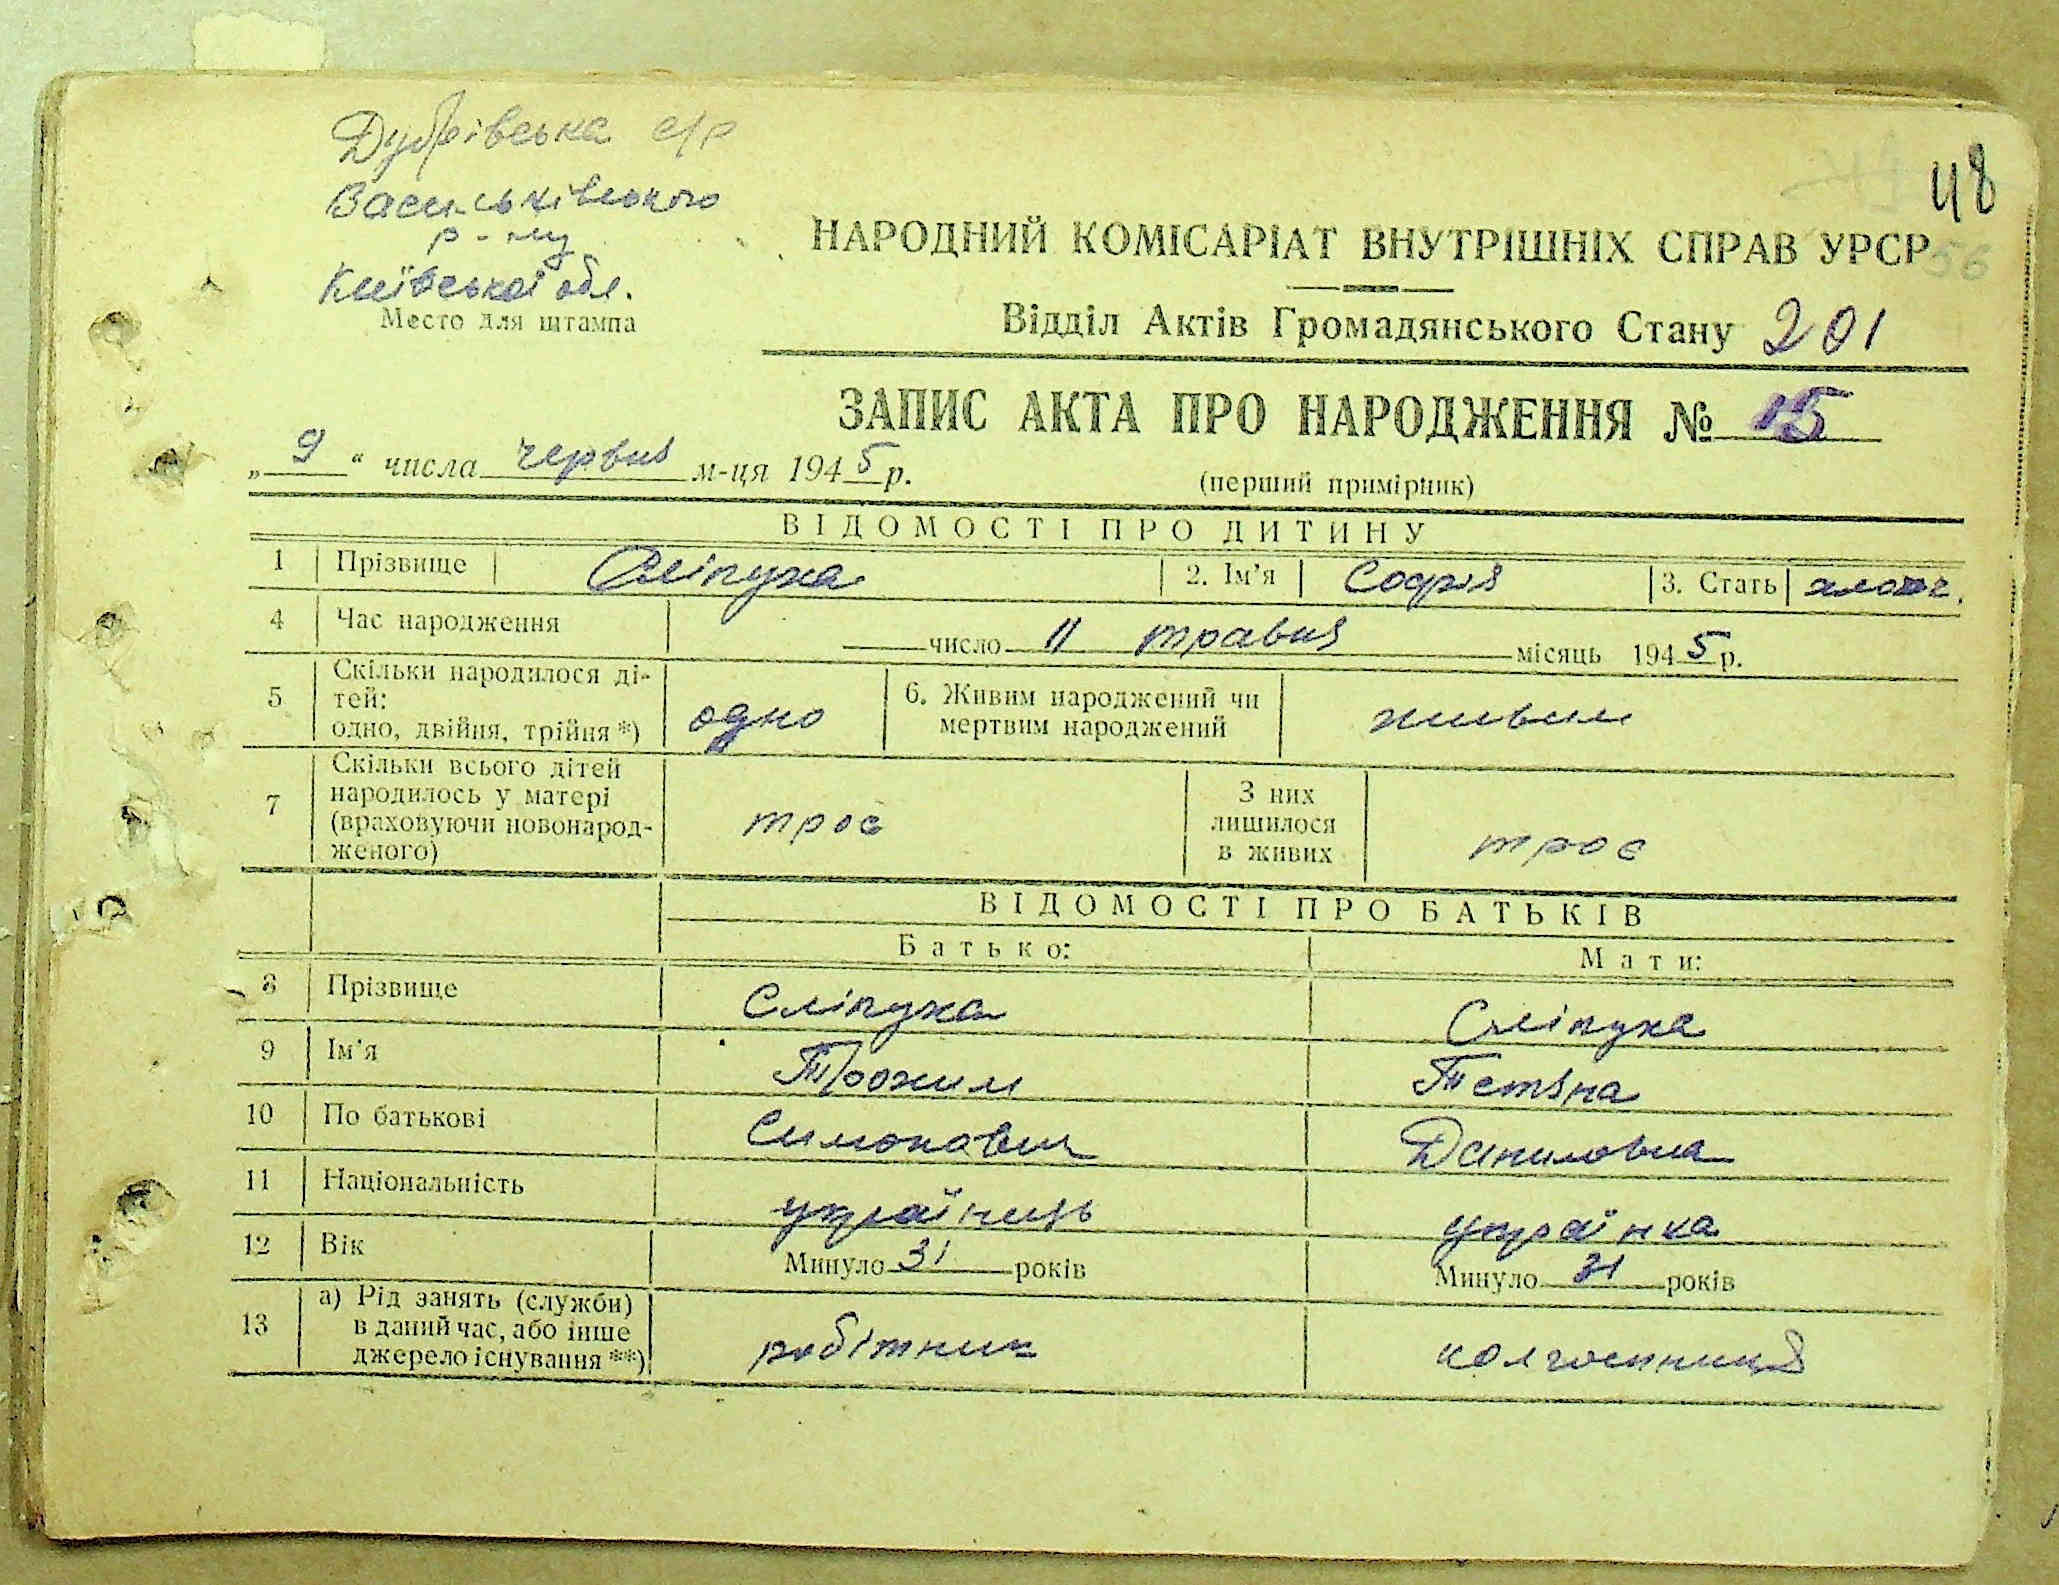 Дубрівська с/р
Васильківського
р-ну
Київської обл.
Место для штампа
48
56
НАРОДНИЙ КОМІСАРІАТ ВНУТРІШНІХ СПРАВ УРСР
Відділ Актів Громадянського Стану 201
ЗАПИС АКТА ПРО НАРОДЖЕННЯ № 15
„ 9 “ числа червня м-ця 1945 р.
(перший примірник)
ВІДОМОСТІ ПРО ДИТИНУ
1 Прізвище Сліпуха 2. Ім'я Софія 3. Стать
4 Час народження число 11 травня місяць 1945 р.
5 Скільки народилося ді-
тей:
одно, двійня, трійня *) одно 6. Живим народжений чи
мертвим народжений живим
7 Скільки всього дітей
народилось у матері
(враховуючи новонарод-
женого) троє З них
лишилося
в живих троє
ВІДОМОСТІ ПРО БАТЬКІВ
Батько: Мати:
8 Прізвище Сліпуха Сліпуха
9 Ім'я Трохим Тетяна
10 По батькові Симонович Даниловна
11 Національність українець українка
12 Вік Минуло 31 років Минуло 31 років
13 а) Рід занять (служби)
в даний час, або інше
джерело існування **) робітник колгоспниця